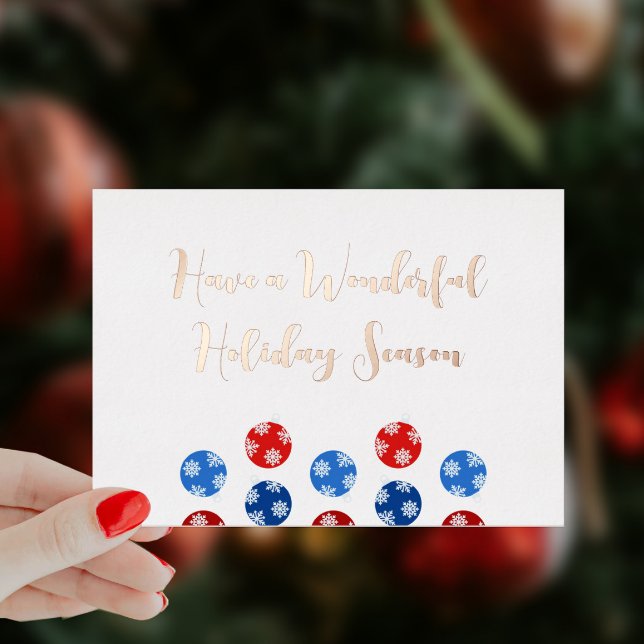 Have a Wonderful
Holiday Season